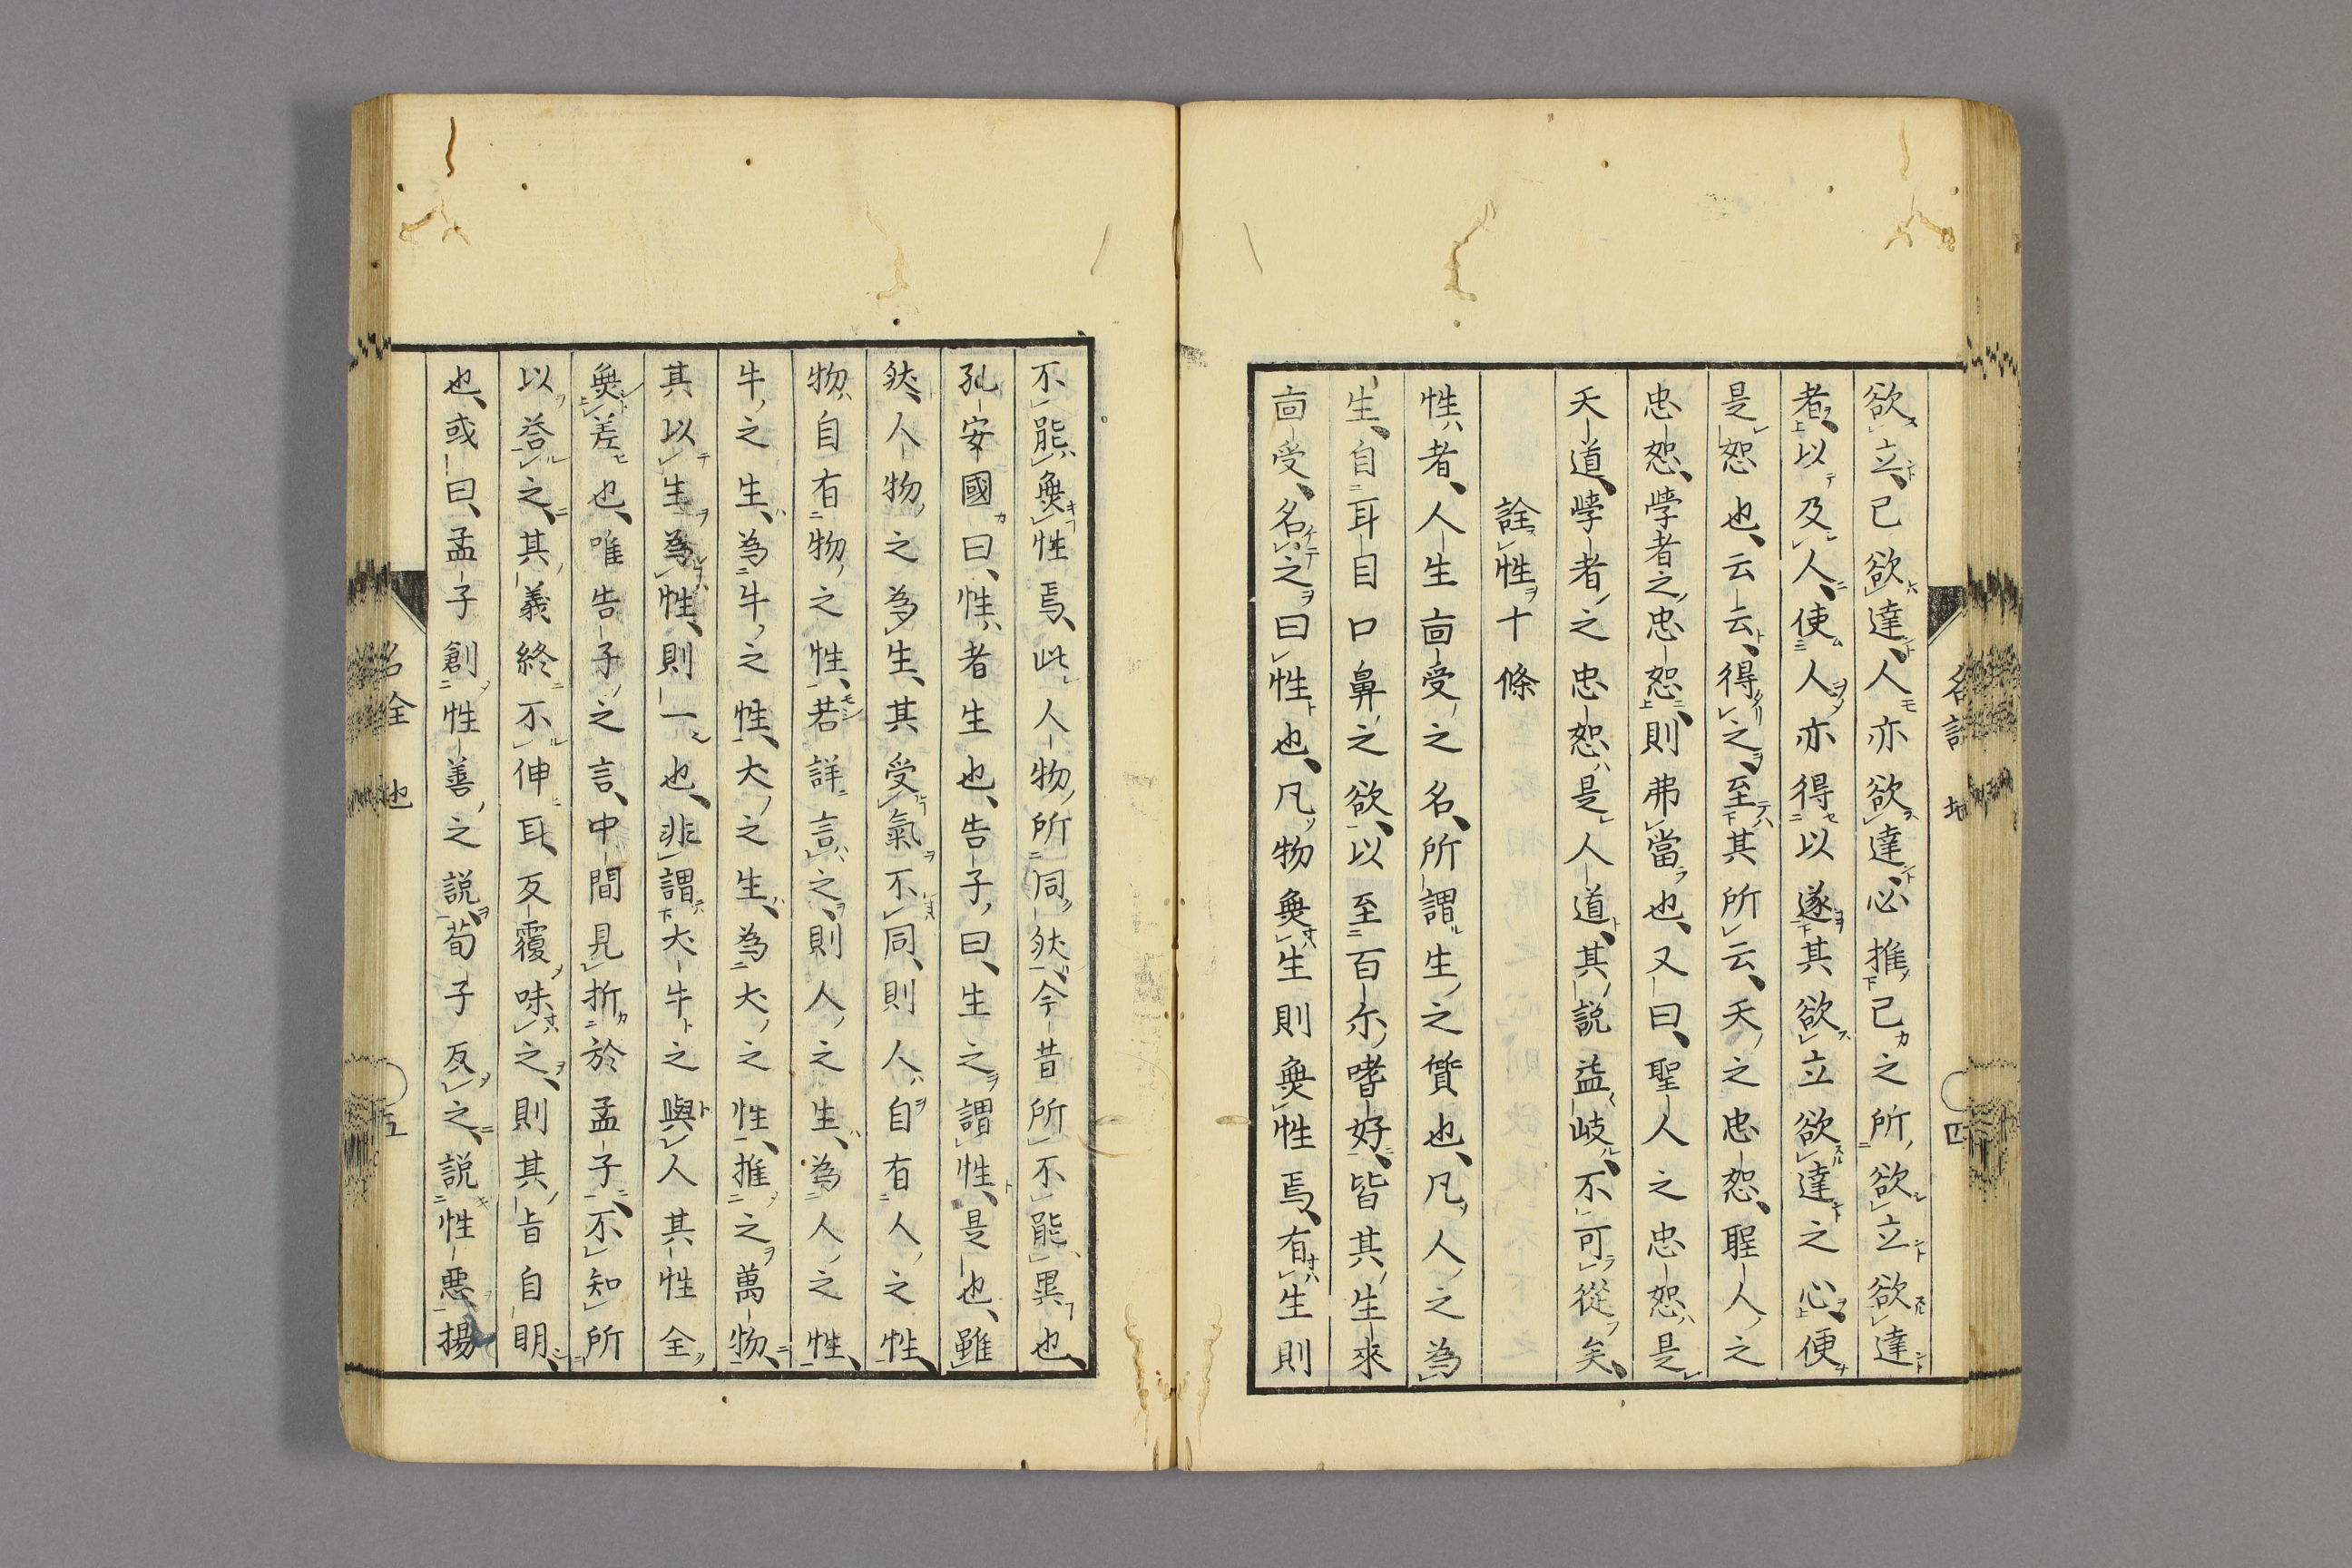 欲立己欲達人亦欲達必推己之所欲立欲達
者以及人使人亦得以遂其欲立欲達之心便
是恕也云云得之至其所云天之忠恕聖人之
忠恕學者之忠恕則弗當也又曰聖人之忠恕是
天道學者之忠恕是人道其說益岐不可從矣
詮性十條
性者人生亩受之名所謂生之質也凡人之為
生自耳目口鼻之欲以至百尓嗜好皆其生來
亩受名之曰性也凡物無生則無性焉有生則
不能無性焉此人物所同然今昔所不能異也
孔安國曰性者生也告子曰生之謂性是也雖
然人物之為生其受氣不同則人自有人之性
物自有物之性若詳言之則人之生為人之性
牛之生為牛之性犬之生為犬之性推之萬物
其以生為性則一也非謂犬牛之與人其性全
無差也唯告子之言中間見折於孟子不知所
以荅之其義終不伸耳反覆味之則其旨自明
也或曰孟子創性善之說荀子反之說性惡揚
四
五